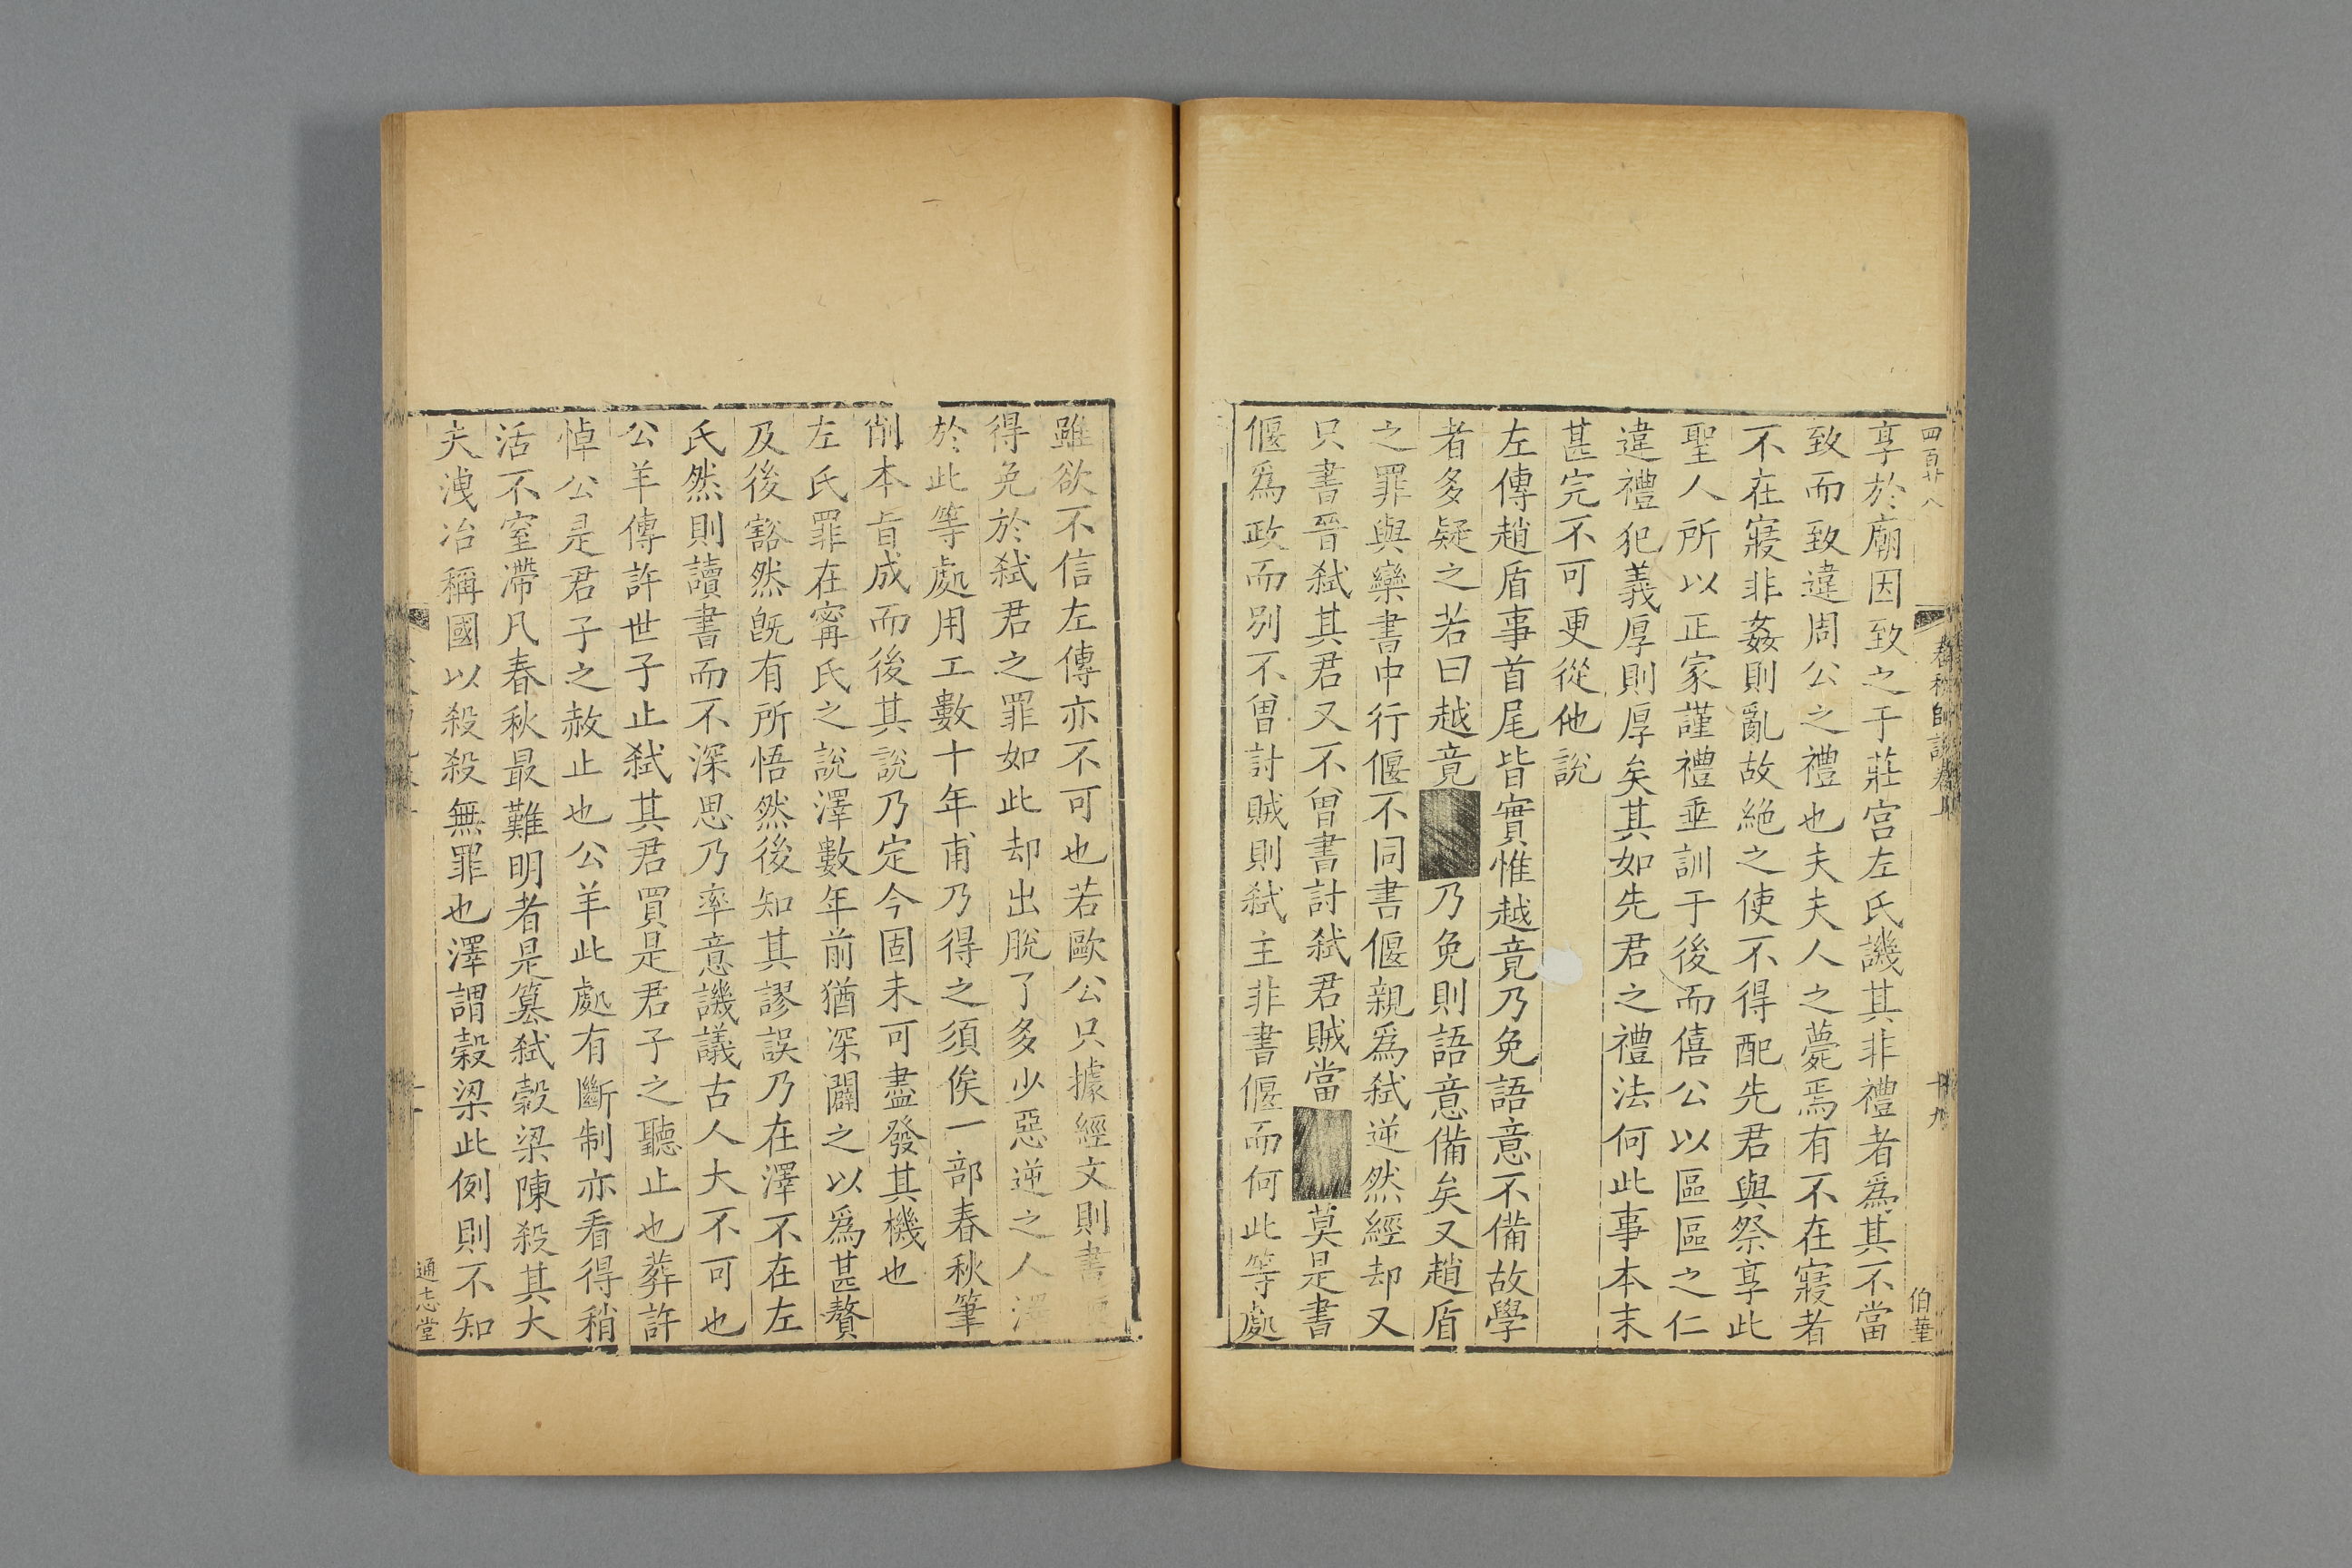 四百廿八
春秋師說卷上
十九
伯華
享於廟因致之于莊宮左氏譏其非禮者爲其不當
致而致違周公之禮也夫夫人之薨焉有不在寢者
不在寢非姦則亂故絶之使不得配先君與祭享此
聖人所以正家謹禮垂訓于後而僖公以區區之仁
違禮犯義厚則厚矣其如先君之禮法何此事本末
甚完不可更從他說
左傳趙盾事首尾皆實惟越竟乃免語意不備故學
者多疑之若曰越竟乃免則語意備矣又趙盾
之罪與欒書中行偃不同書偃親爲弑逆然經却又
只書晉弑其君又不曾書討弑君賊當莫是書
偃爲政而別不曾討賊則弑主非書偃而何此等處
雖欲不信左傳亦不可也若歐公只據經文則書
得免於弑君之罪如此却出脫了多少惡逆之人澤
於此等處用工數十年甫乃得之須俟一部春秋筆
削本旨成而後其說乃定今固未可盡發其機也
左氏罪在甯氏之說澤數年前猶深闢之以爲甚贅
及後豁然旣有所悟然後知其謬誤乃在澤不在左
氏然則讀書而不深思乃率意譏議古人大不可也
公羊傳許世子止弑其君買是君子之聽止也葬許
悼公是君子之赦止也公羊此處有斷制亦看得稍
活不窒滯凡春秋最難明者是簒弑穀梁陳殺其大
夫洩冶稱國以殺殺無罪也澤謂穀梁此例則不知
通志堂